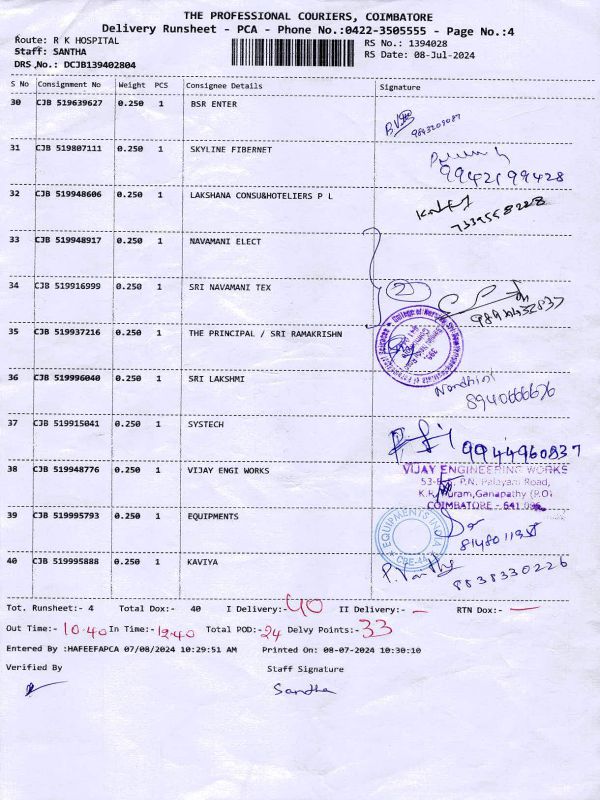 THE PROFESSIONAL COURIERS, COIMBATORE
Delivery Runsheet - PCA - Phone No.:0422-3505555 - Page No.:4
Route: R K HOSPITAL
RS No.: 1394028
Staff: SANTHA
RS Date: 08-Jul-2024
DRS No.: DCJB139402804
S No Consignment No Weight PCS Consignee Details Signature
30 CJB 519639627 0.250 1 BSR ENTER
31 CJB 519807111 0.250 1 SKYLINE FIBERNET
9942199428
32 CJB 519948606 0.250 1 LAKSHANA CONSU&HOTELIERS P L
7339558228
33 CJB 519948917 0.250 1 NAVAMANI ELECT
34 CJB 519916999 0.250 1 SRI NAVAMANI TEX
2
35 CJB 519937216 0.250 1 THE PRINCIPAL / SRI RAMAKRISHN
36 CJB 519996040 0.250 1 SRI LAKSHMI
Nandhini
8940666676
37 CJB 519915041 0.250 1 SYSTECH
9944960837
38 CJB 519948776 0.250 1 VIJAY ENGI WORKS
VIJAY ENGINEERING WORKS
P.N. Palayam Road,
Ganapathy (P.O)
COIMBATORE - 641 006.
39 CJB 519995793 0.250 1 EQUIPMENTS
EQUIPMENTS INDIA
40 CJB 519995888 0.250 1 KAVIYA
8838330226
Tot. Runsheet:- 4 Total Dox:- 40 I Delivery:- 40 II Delivery:- — RTN Dox:- —
Out Time:- 10.40 In Time:- 12.40 Total POD:- 24 Delvy Points:- 33
Entered By :HAFEEFAPCA 07/08/2024 10:29:51 AM Printed On: 08-07-2024 10:30:10
Verified By Staff Signature
Sandha